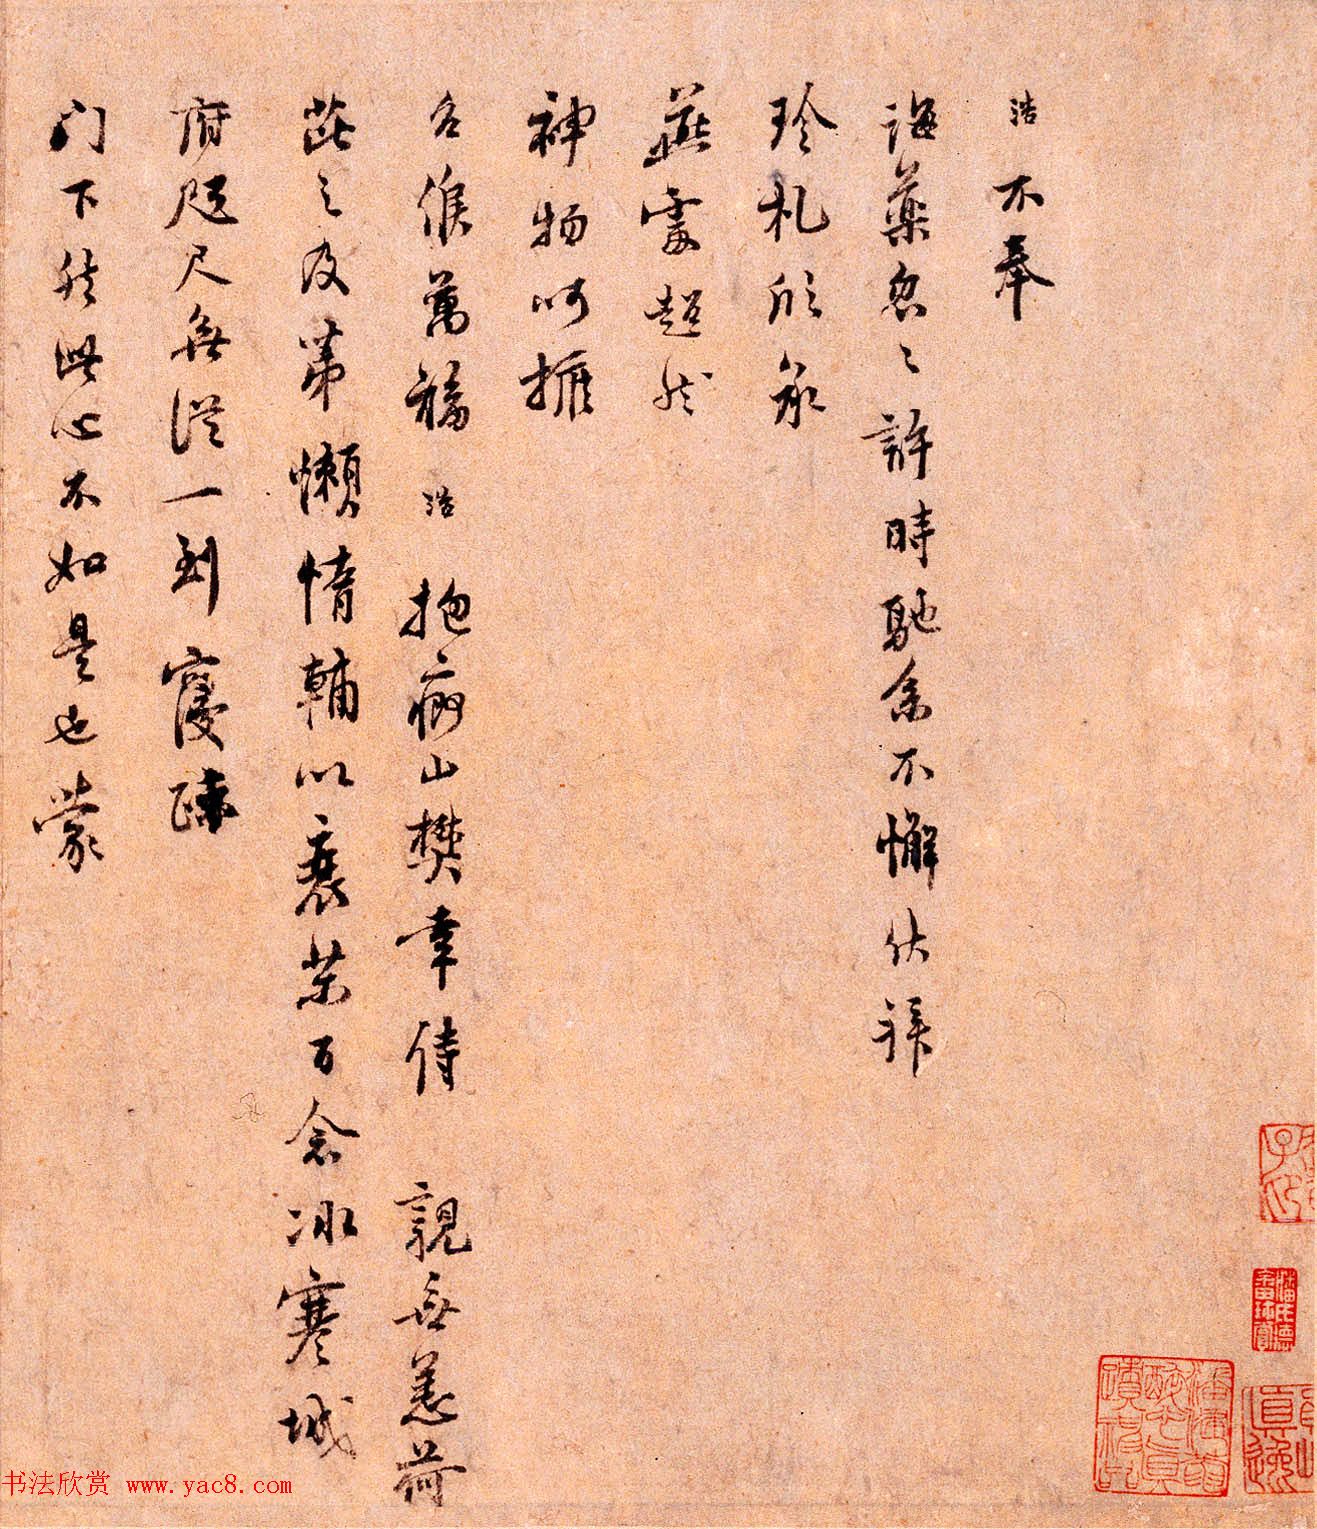 浩不奉
誨藥忽〻許時馳系不懈伏被
珍札欣承
燕處超然
神物呵擁
台候萬福浩抱痾山樊幸侍親無恙荷
茈之及第懶惰輔以衰荣百念冰寒城
府咫尺無從一到寢疎
门下然此心不如是也蒙
书法欣赏 www.yac8.com